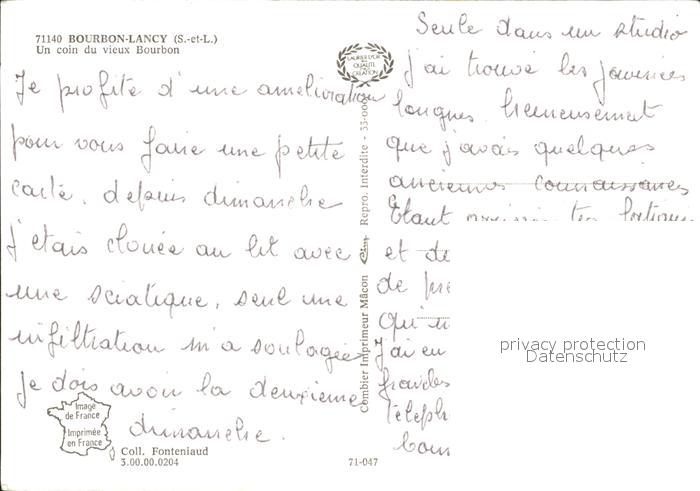 71140 BOURBON-LANCY (S.-et-L.)
Un coin du vieux Bourbon
Je profite d'une amélioration
pour vous faire une petite
carte. depuis dimanche
j'etais clouée au lit avec
une sciatique, seul une
infiltration m'a soulagée
je dois avoir la deuxieme
dimanche.
Image
de France
Imprimée
en France
Coll. Fonteniaud
3.00.00.0204
71-047
LAURIER D'OR
QUALITÉ
CRÉATION
Combier Imprimeur Mâcon Cim Repro. Interdite
Seule dans un studio
j'ai trouvé les journées
longues. heureusement
que j'avais quelques
anciennes connaissances
Etant
et de
de pre
qui
J'ai eu
grandes
Teleph
Cour
privacy protection
Datenschutz